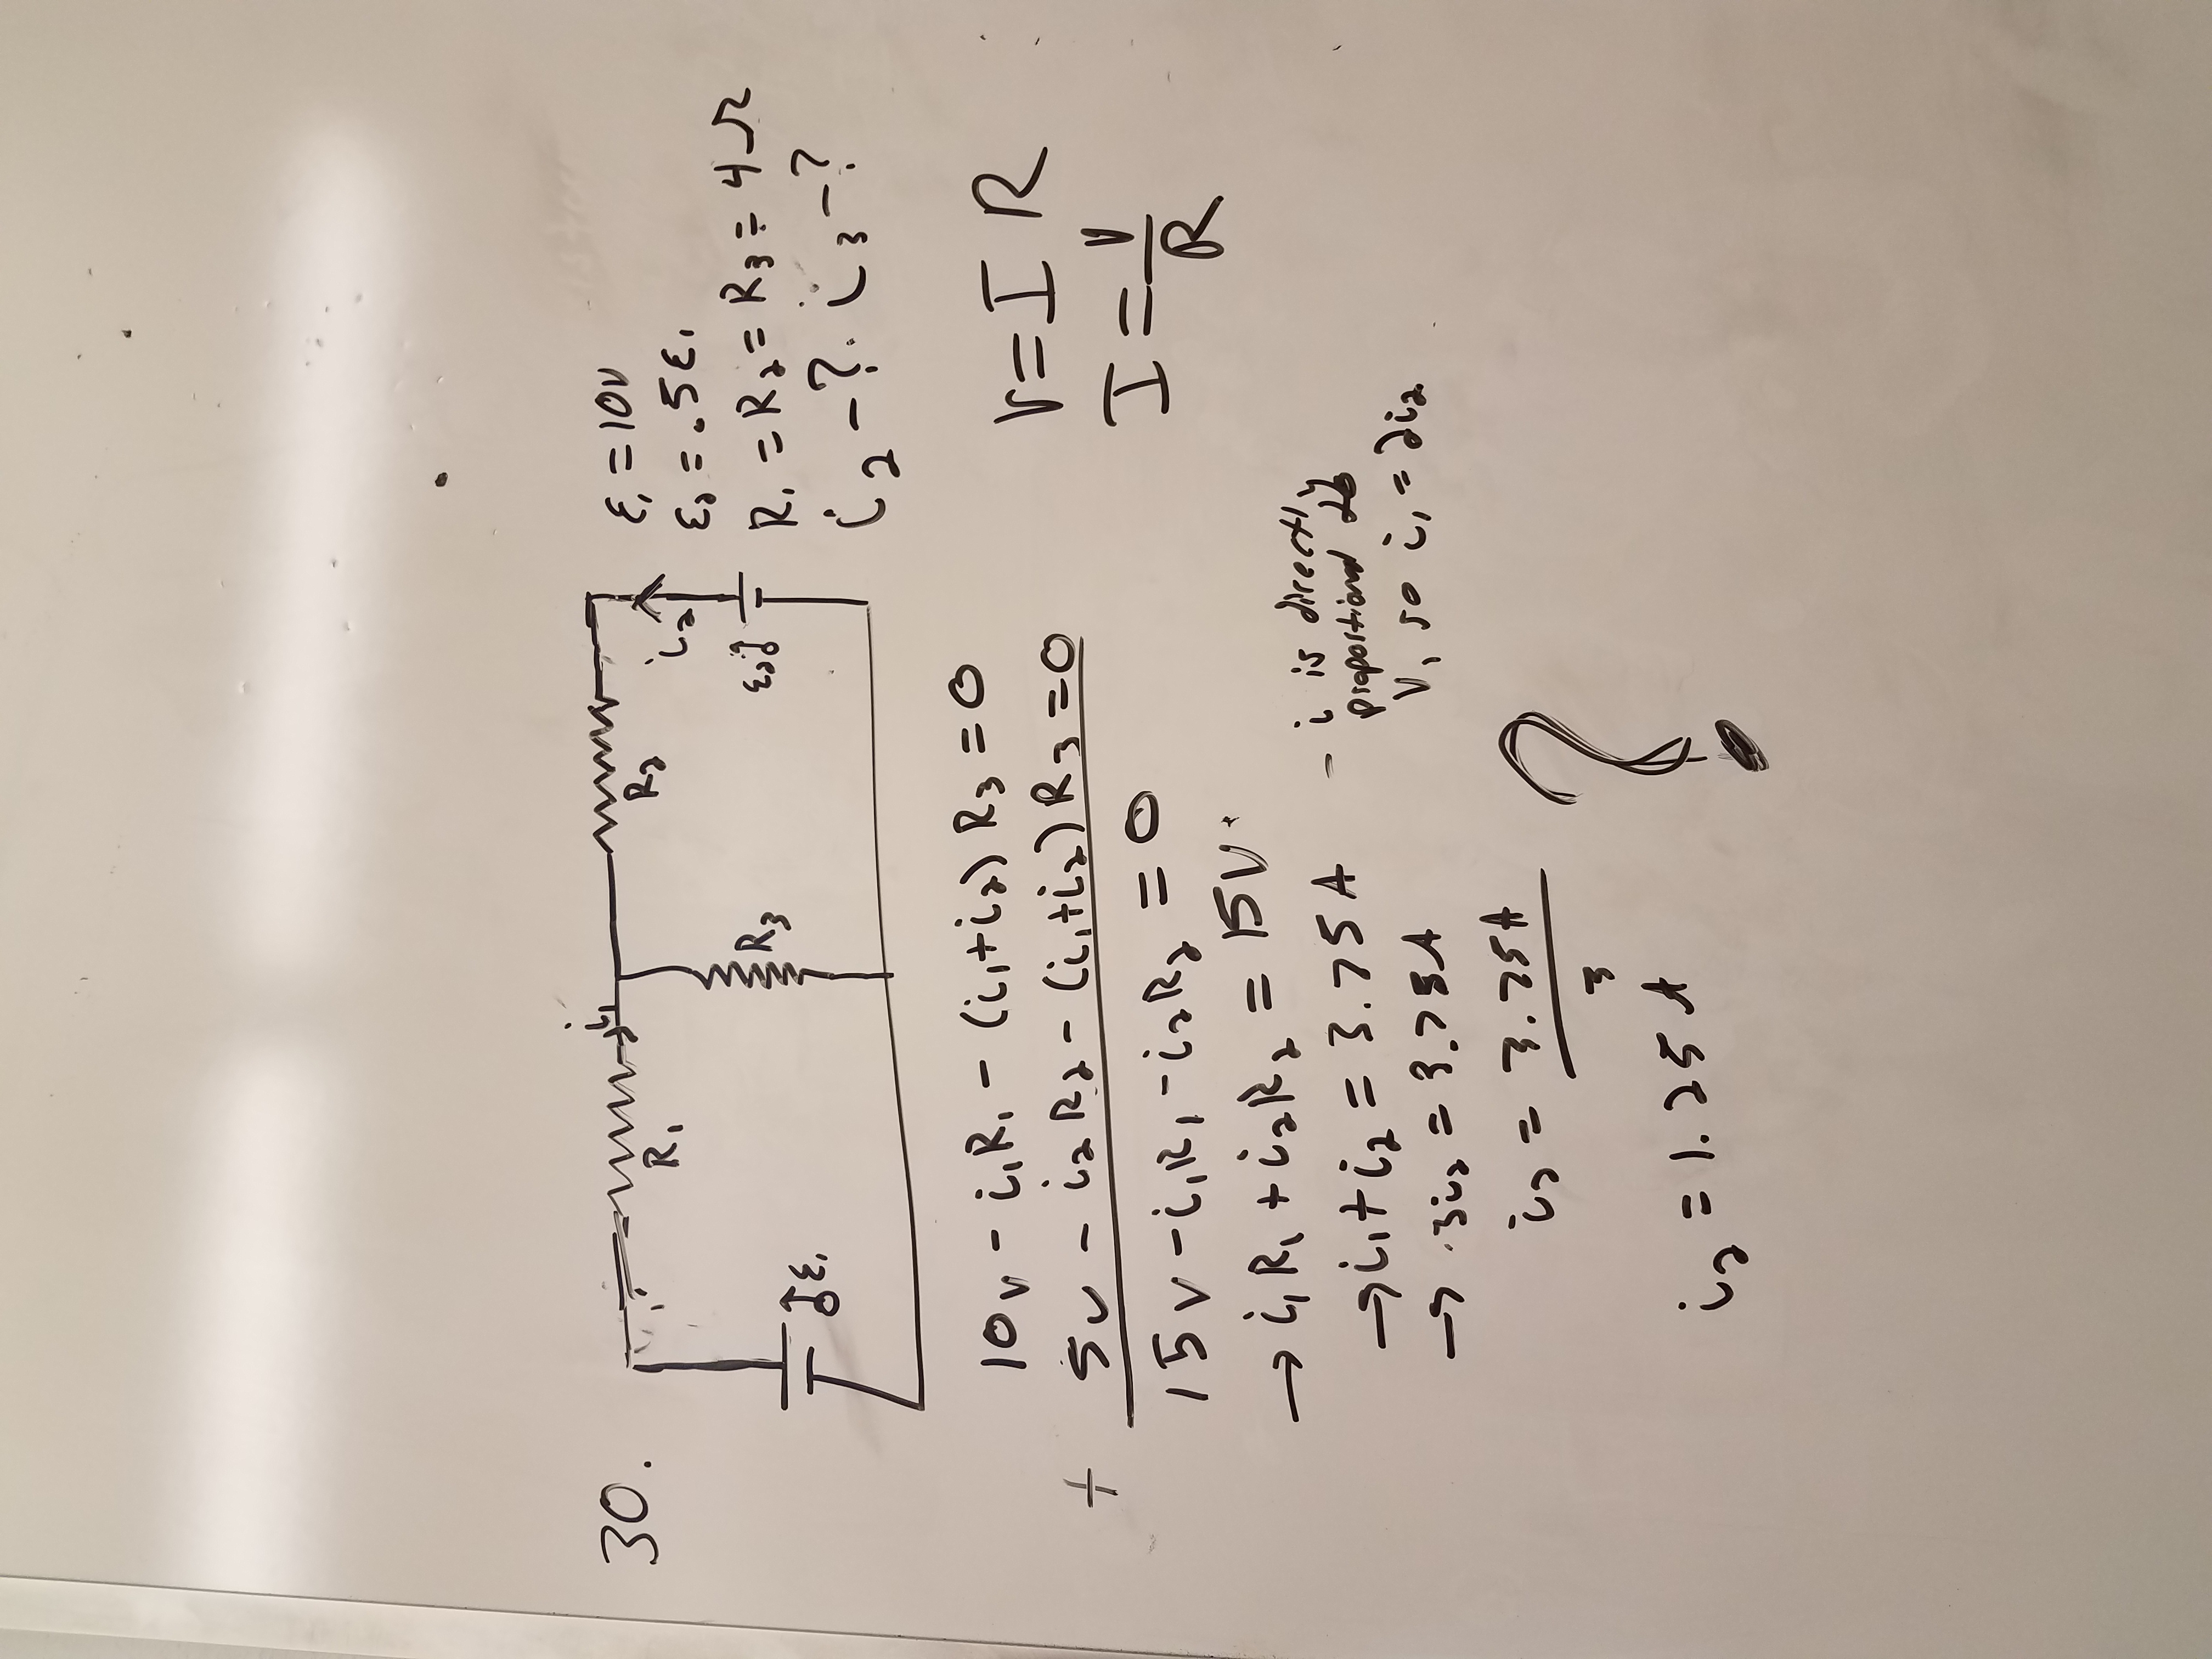 30.
i₁
R₁
R₂
i₂
R₃
ε₁
ε₂
ε₁ = 10v
ε₂ = .5ε₁
R₁ = R₂ = R₃ = 4Ω
i₂ - ? i₃ - ?
10v - i₁R₁ - (i₁+i₂) R₃ = 0
+ 5v - i₂R₂ - (i₁+i₂) R₃ = 0
15v - i₁R₁ - i₂R₂ = 0
→ i₁R₁ + i₂R₂ = 15V
→ i₁ + i₂ = 3.75A
→ 3i₂ = 3.75A
i₂ = 3.75A
3
i₂ = 1.25A
V = I R
I = V
R
- i is directly
proportional to
V, so i₁ = 2i₂
?